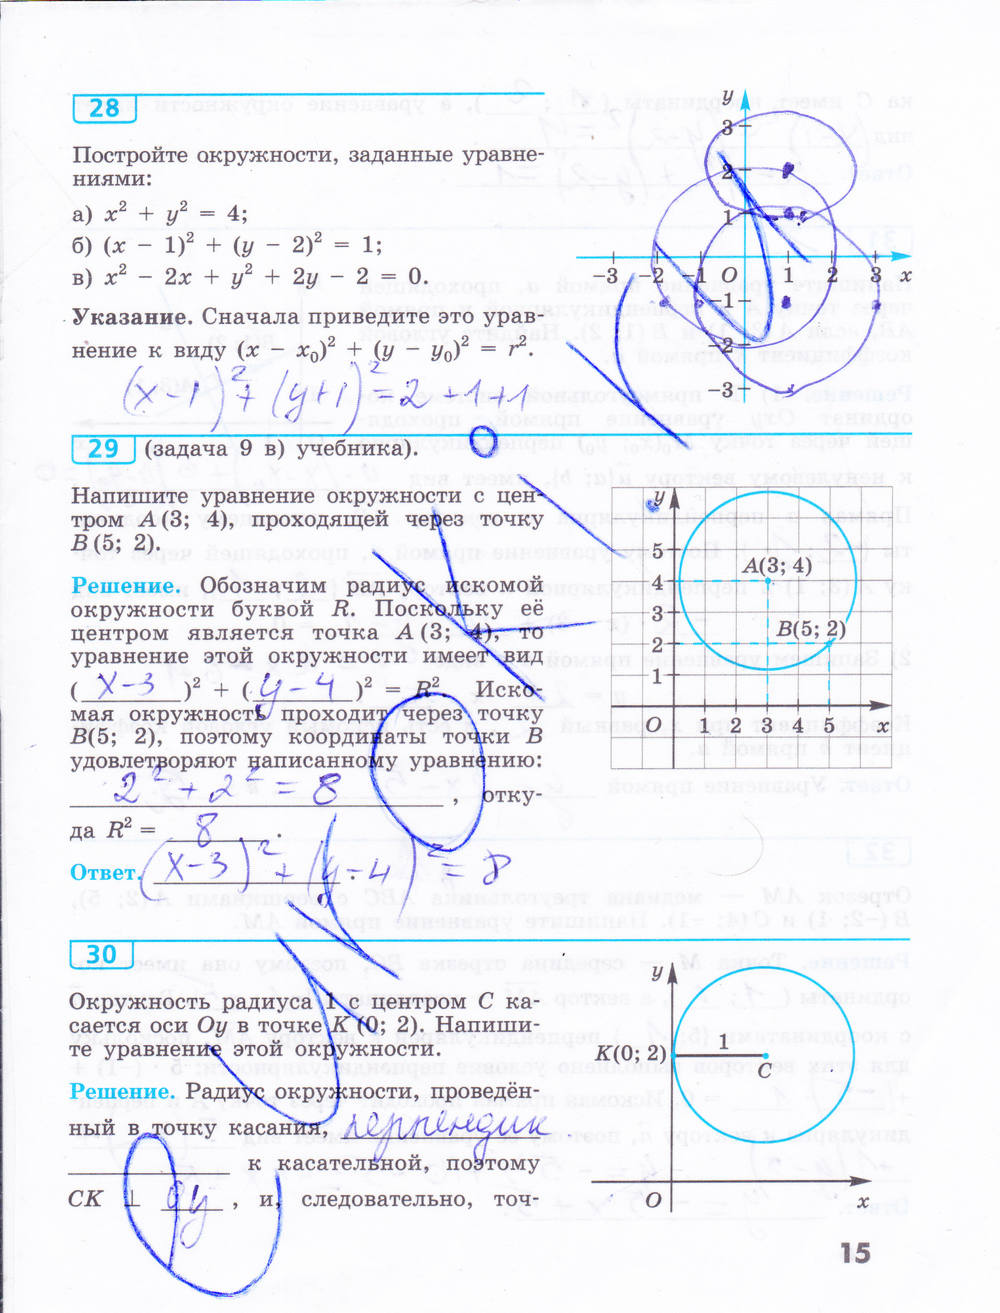 28
Постройте окружности, заданные уравне-
ниями:
а) x² + y² = 4;
б) (x − 1)² + (y − 2)² = 1;
в) x² − 2x + y² + 2y − 2 = 0.
Указание. Сначала приведите это урав-
нение к виду (x − x₀)² + (y − y₀)² = r².
(x-1)² + (y+1)² = 2+1+1
y
3
2
1
−3 −2 −1 O 1 2 3 x
−1
−2
−3
29 (задача 9 в) учебника).
Напишите уравнение окружности с цен-
тром A (3; 4), проходящей через точку
B (5; 2).
Решение. Обозначим радиус искомой
окружности буквой R. Поскольку её
центром является точка A (3; 4), то
уравнение этой окружности имеет вид
( x-3 )² + ( y-4 )² = R² Иско-
мая окружность проходит через точку
B(5; 2), поэтому координаты точки B
удовлетворяют написанному уравнению:
2² + 2² = 8 , отку-
да R² = 8 .
Ответ. (x-3)² + (y-4)² = 8
y
5
4 A(3; 4)
3 B(5; 2)
2
1
O 1 2 3 4 5 x
30
Окружность радиуса 1 с центром C ка-
сается оси Oy в точке K (0; 2). Напиши-
те уравнение этой окружности.
Решение. Радиус окружности, проведён-
ный в точку касания, перпендик
к касательной, поэтому
CK ⊥ Oy , и, следовательно, точ-
y
K(0; 2) 1
C
O x
15